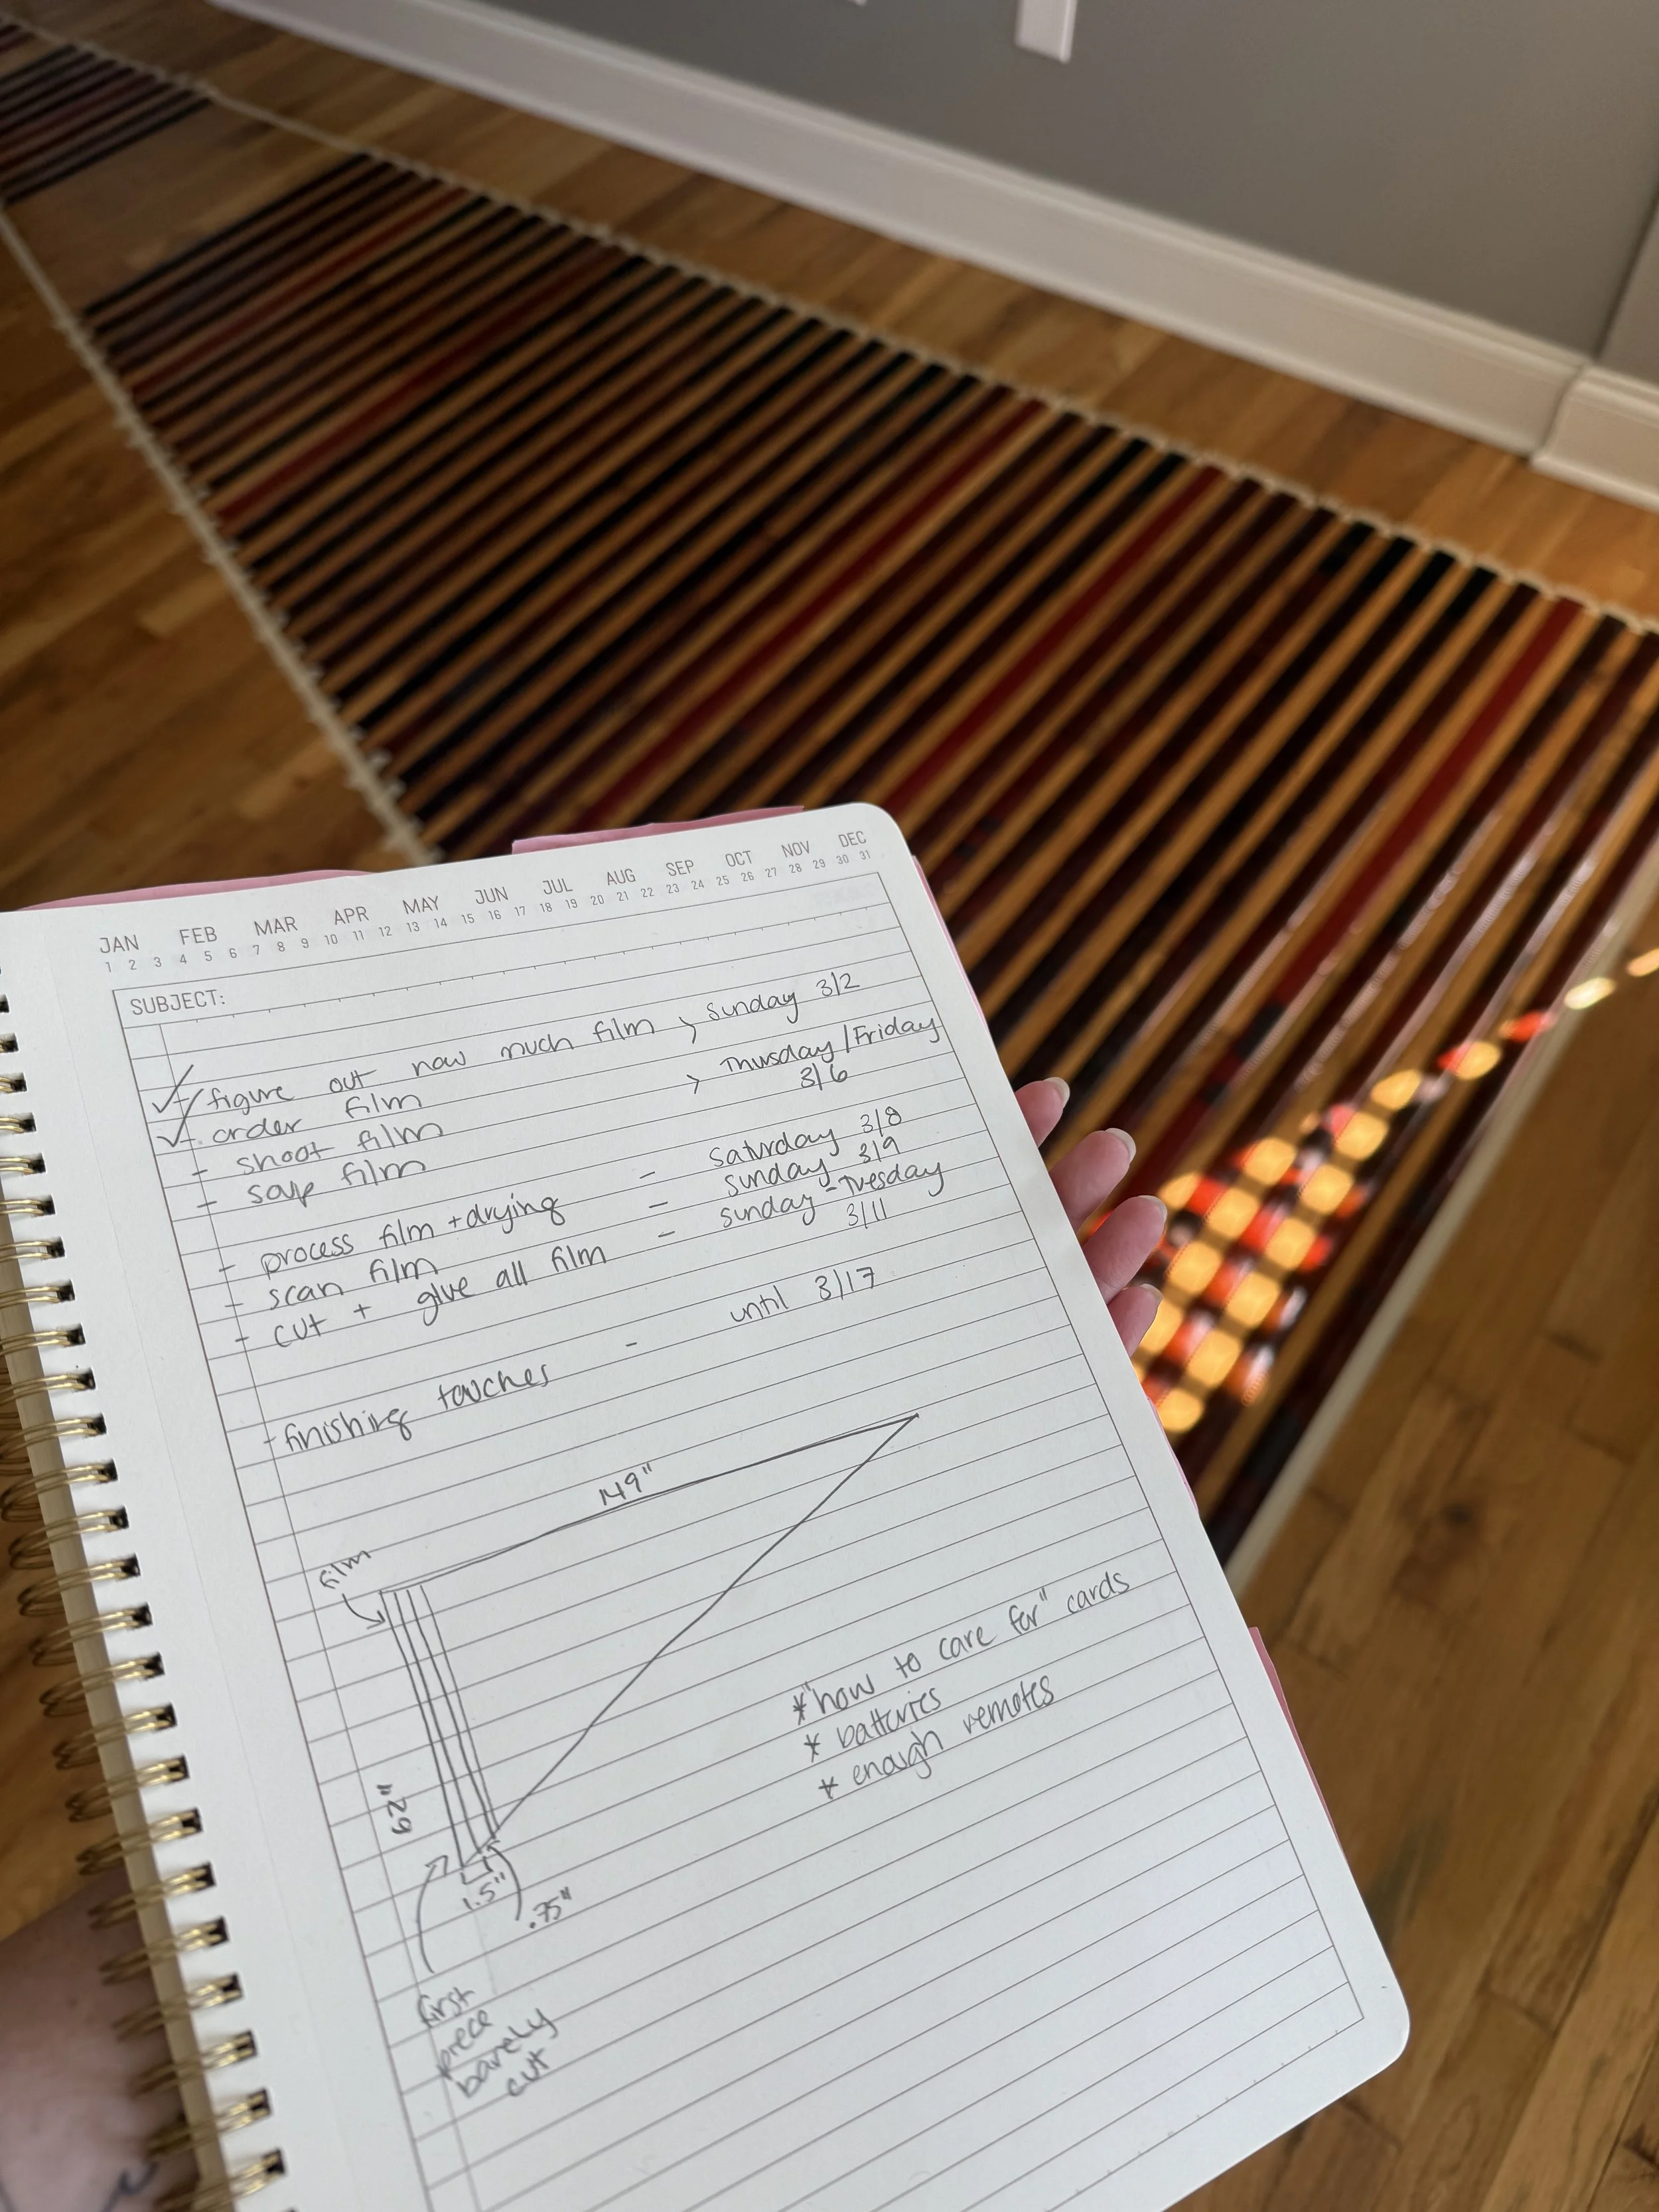 JAN FEB MAR APR MAY JUN JUL AUG SEP OCT NOV DEC
1 2 3 4 5 6 7 8 9 10 11 12 13 14 15 16 17 18 19 20 21 22 23 24 25 26 27 28 29 30 31
SUBJECT:
- figure out how much film > Sunday 3/2
- order film
- shoot film > Thursday/Friday
- soup film 3/6
- process film + drying - Saturday 3/8
- scan film - Sunday 3/9
- cut + glue all film - Sunday-Tuesday
3/11
- finishing touches - until 3/17
149"
film
62"
1.5"
.75"
first
piece
barely
cut
* "how to care for" cards
* batteries
* enough remotes